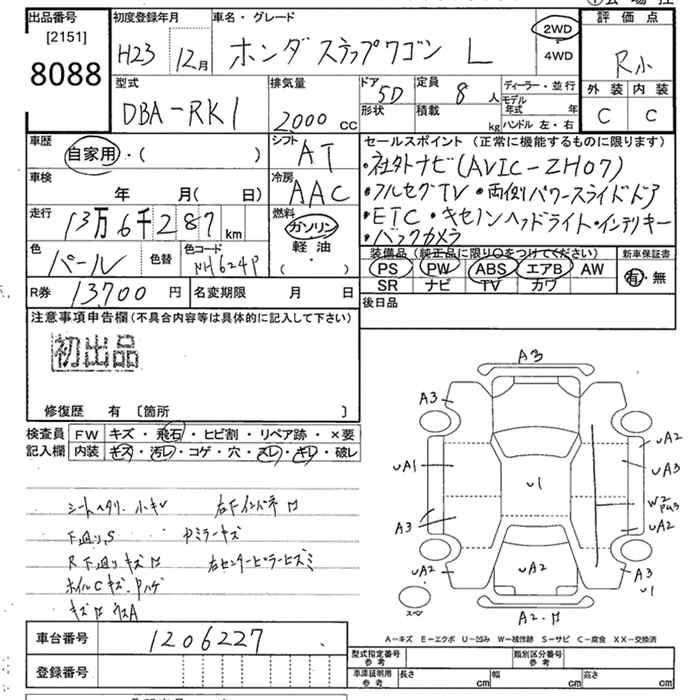 出品番号 [2151] 8088
初度登録年月 H23 12月
車名・グレード ホンダ ステップワゴン L
2WD
4WD
評価点 R小
外装 内装
C C
型式 DBA-RK1
排気量 2000 cc
ドア 5D
形状
定員 8 人
積載 kg
ディーラー・並行
モデル年式 年
ハンドル 左・右
車歴 自家用・( )
シフト AT
車検 年 月( 日)
冷房 AAC
走行 13万6千287 km
燃料 ガソリン
軽油
・( )
色 パール 色替
色コード NH624P
セールスポイント (正常に機能するものに限ります)
・社外ナビ(AVIC-ZH07)
・フルセグTV・両側パワースライドドア
・ETC・キセノンヘッドライト・インテリキー
・バックカメラ
装備品 (純正品に限り○をつけてください)
新車保証書
PS PW ABS エアB AW
有・無
SR ナビ TV カワ
R券 13700 円
名変期限 月 日
後日品
注意事項申告欄(不具合内容等は具体的に記入して下さい)
初出品
修復歴 有 〔箇所 〕
検査員記入欄
FW キズ・飛石・ヒビ割・リペア跡・×要
内装 キズ・汚レ・コゲ・穴・スレ・キレ・破レ
シートヘタリ、小キレ
下廻り、S
R下廻りキズ
ホイルCキズ、ハゲ
A3
A3
UA2
UA1
UA3
U1
W2
UA2
A3
UA2
UA2
A3
U1
スペア
A2
A-キズ E-エクボ U-凹み W-補修跡 S-サビ C-腐食 XX-交換済
車台番号 1206227
登録番号
型式指定番号 参考
類別区分番号 参考
車庫証明用 参考 長さ cm 幅 cm 高さ cm